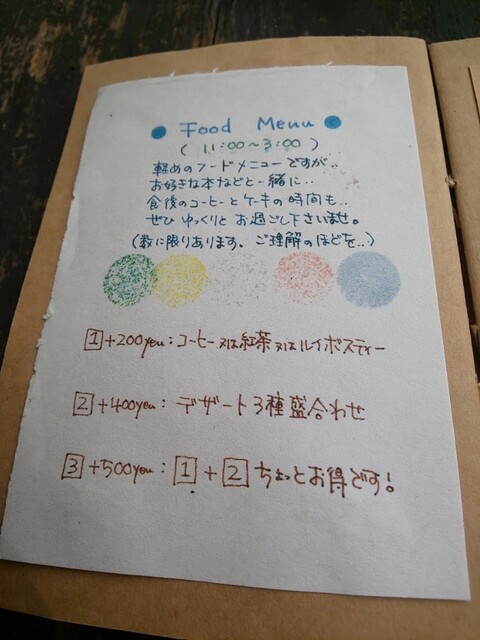 Food Menu
(11:00~3:00)
軽めのフードメニューですが..
お好きな本などと一緒に..
食後のコーヒーとケーキの時間も..
ぜひ ゆっくりと お過ごし下さいませ。
(数に限りあります。ご理解のほどを..)
1 +200yen:コーヒー 又は 紅茶 又は ルイボスティー
2 +400yen:デザート3種盛合わせ
3 +500yen:1+2 ちょっとお得です!